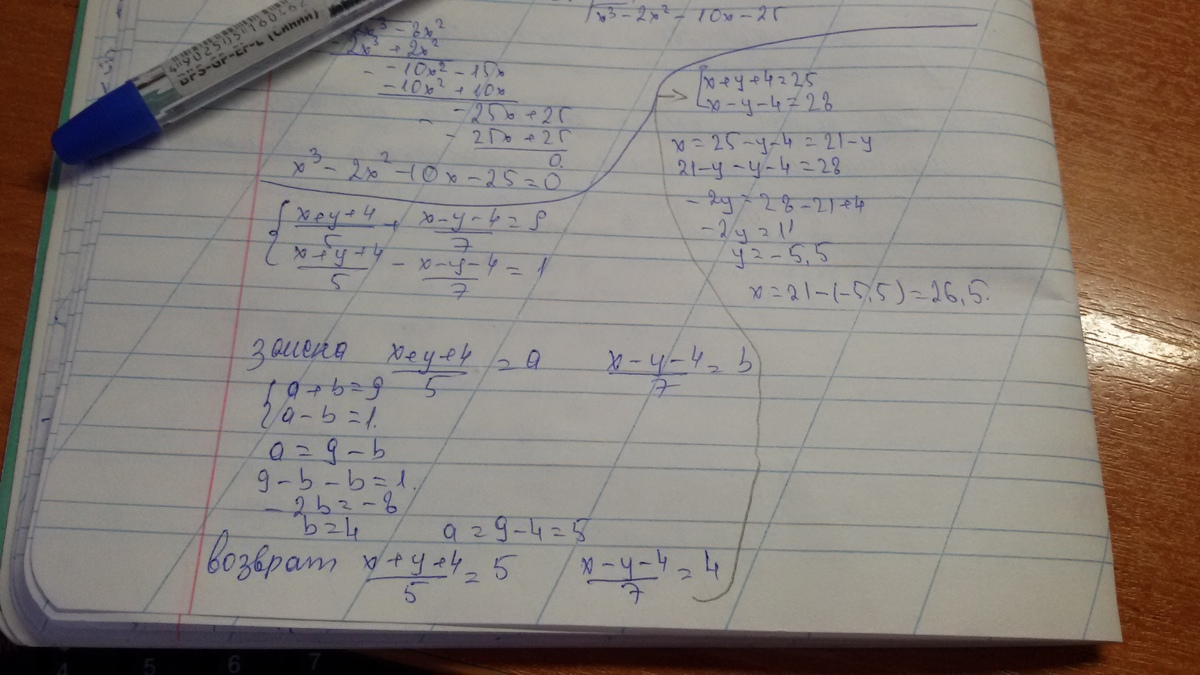 x³ - 2x² - 10x - 25
2x³ + 2x²
-10x² - 15x
-10x² + 10x
-25x + 25
-25x + 25
0.
x³ - 2x² - 10x - 25 = 0
{ (x+y+4)/5 + (x-y-4)/7 = 9
(x+y+4)/5 - (x-y-4)/7 = 1
замена (x+y+4)/5 = a (x-y-4)/7 = b
{ a + b = 9
a - b = 1.
a = 9 - b
9 - b - b = 1.
-2b = -8
b = 4 a = 9 - 4 = 5
возврат (x+y+4)/5 = 5 (x-y-4)/7 = 4
→ [ x+y+4=25
x-y-4=28
x = 25-y-4 = 21-y
21-y-y-4=28
-2y = 28-21+4
-2y = 11
y = -5,5
x = 21-(-5,5) = 26,5.
4902505160262
4 5 6 7